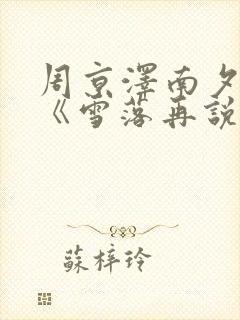 周京澤南夕
《雪落再說
蘇梓玲